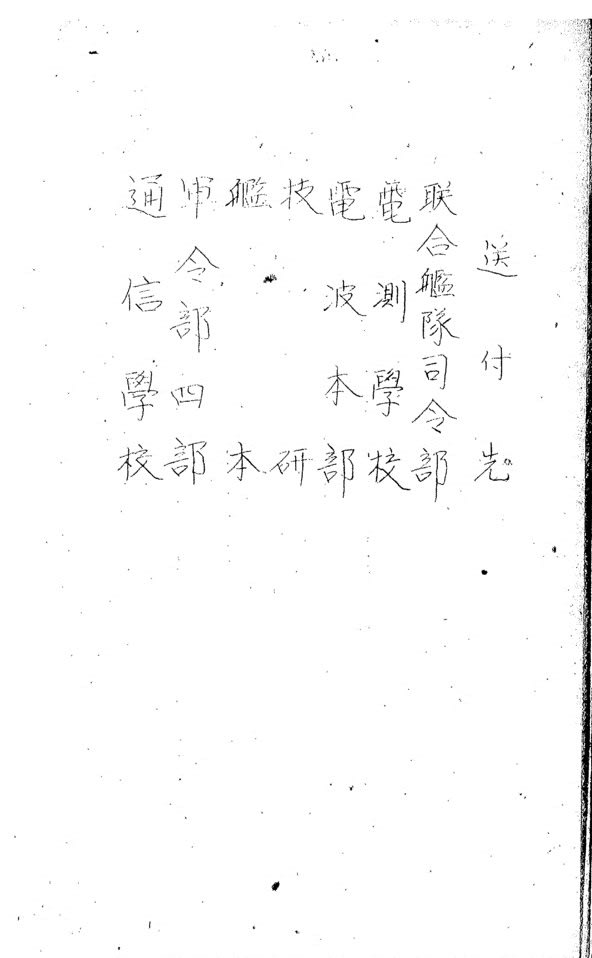 送付先
联合艦隊司令部
電測學校
電波本部
技研
艦本
軍令部四部
通信學校